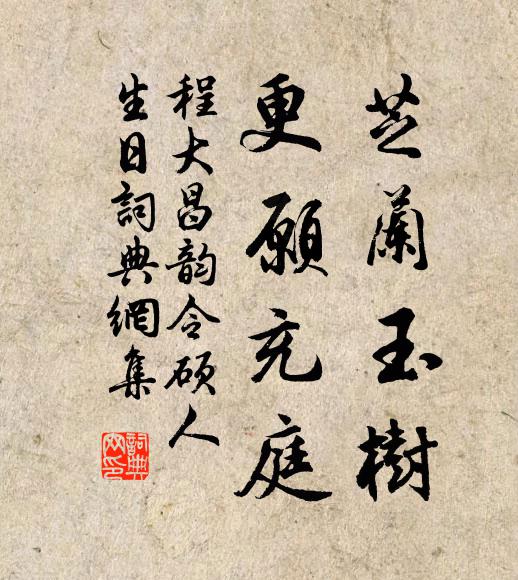 芝蘭玉樹
更願充庭
程大昌韵令硕人
生日詞典網集
詞典網印